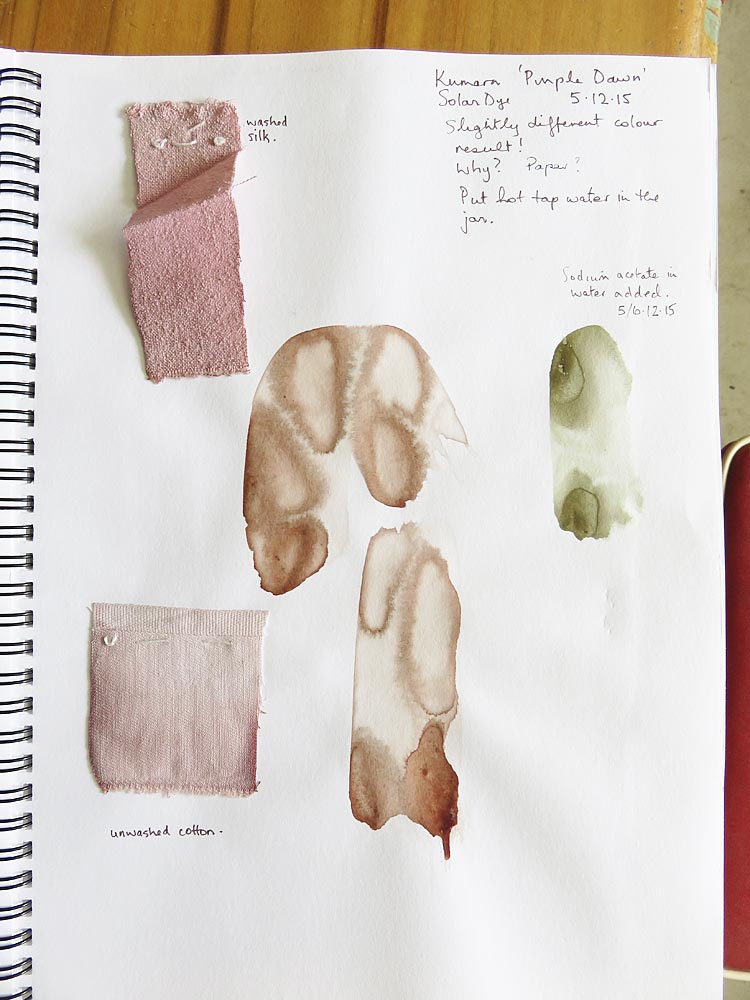 Kumara 'Purple Dawn'
Solar Dye 5.12.15
Slightly different colour
result!
Why? Paper?
Put hot tap water in the
jar.
washed
silk.
Sodium acetate in
water added.
5/6.12.15
unwashed cotton.